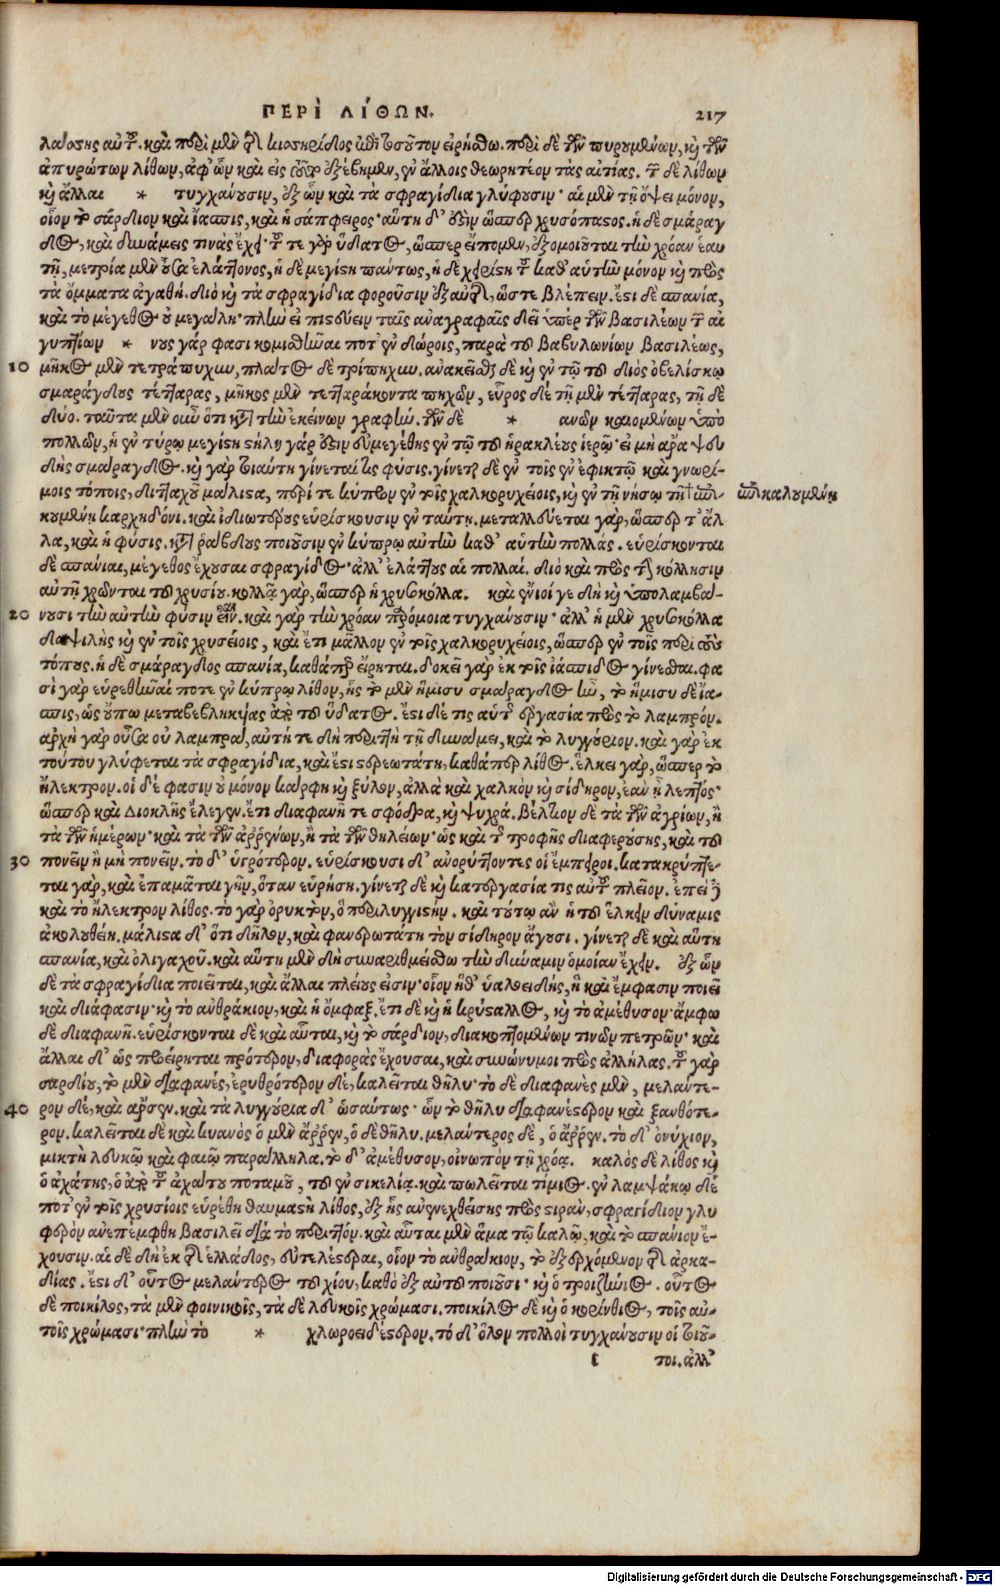 ΠΕΡῚ ΛΊΘΩΝ. 217
λαίστης αὐτῆς. καὶ περὶ μὲν τῆς κισηρίδος ἐπὶ τοσοῦτον εἰρήσθω. περὶ δὲ τῶν πυρουμένων, καὶ τῶν
ἀπυρώτων λίθων, ἀφ' ὧν καὶ εἰς τοῦτο ἐξέβημεν, ἐν ἄλλοις θεωρητέον τὰς αἰτίας. τῶν δὲ λίθων
καὶ ἄλλαι * τυγχάνουσιν, ἐξ ὧν καὶ τὰ σφραγίδια γλύφουσιν· αἱ μὲν τῇ ὄψει μόνον,
οἷον τὸ σάρδιον καὶ ἴασπις, καὶ ἡ σάπφειρος· αὕτη δ' ἐστὶν ὥσπερ χρυσόπαστος. ἡ δὲ σμάραγ
δος, καὶ δυνάμεις τινὰς ἔχει· τοῦ τε γὰρ ὕδατος, ὥσπερ εἴπομεν, ἐξομοιοῦται τὴν χρόαν ἑαυ
τῇ, μετρία μὲν οὖσα ἐλάττονος, ἡ δὲ μεγίστη παντὸς, ἡ δὲ χειρίστη τοῦ καθ' αὑτὴν μόνον καὶ πρὸς
τὰ ὄμματα ἀγαθή. διὸ καὶ τὰ σφραγίδια φοροῦσιν ἐξ αὐτῆς, ὥστε βλέπειν. ἔστι δὲ σπανία,
καὶ τὸ μέγεθος οὐ μεγάλη· πλὴν εἰ πιστεύειν ταῖς ἀναγραφαῖς δεῖ ὑπὲρ τῶν βασιλέων τῶν αἰ
γυπτίων * νους γάρ φασι κομισθῆναι ποτ' ἐν δώροις, παρὰ τοῦ βαβυλωνίων βασιλέως,
10 μῆκος μὲν τετράπυχυν, πλάτος δὲ τρίπηχυν. ἀνακεῖσθαι δὲ καὶ ἐν τῷ τοῦ διὸς ὀβελίσκῳ
σμαράγδους τέτταρας, μῆκος μὲν τετταράκοντα πηχῶν, εὖρος δὲ τῇ μὲν τέτταρας, τῇ δὲ
δύο. ταῦτα μὲν οὖν ὅτι κατὰ τὴν ἐκείνων γραφήν. τῶν δὲ * ανῶν καλουμένων ὑπὸ
πολλῶν, ἡ ἐν τύρῳ μεγίστη στήλη γάρ ἐστιν εὐμεγέθης ἐν τῷ τοῦ ἡρακλέους ἱερῷ· εἰ μὴ ἄρα ψευ
δὴς σμάραγδος. καὶ γὰρ τοιαύτη γίνεταί τις φύσις. γίνεται δὲ ἐν τοῖς ἐν ἐφικτῷ καὶ γνωρί-
μοις τόποις, διτταχοῦ μάλιστα, περί τε κύπρον ἐν τοῖς χαλκορυχείοις, καὶ ἐν τῇ νήσῳ τῇ †ἐπι- ἐπικαλουμένη
κειμένη καρχηδόνι. καὶ ἰδιωτέρους εὑρίσκουσιν ἐν ταύτῃ. μεταλλεύεται γὰρ, ὥσπερ τ' ἄλ
λα, καὶ ἡ φύσις. καὶ ῥάβδους ποιοῦσιν ἐν κύπρῳ αὐτὴν καθ' αὑτὴν πολλάς. εὑρίσκονται
δὲ σπάνιαι, μέγεθος ἔχουσαι σφραγίδος· ἀλλ' ἐλάττους αἱ πολλαί. διὸ καὶ πρὸς τὴν κόλλησιν
αὐτῇ χρῶνται τοῦ χρυσίου. κολλᾷ γὰρ, ὥσπερ ἡ χρυσοκόλλα. καὶ ἔνιοί γε δὴ καὶ ὑπολαμβά-
20 νουσι τὴν αὐτὴν φύσιν εἶναι. καὶ γὰρ τὴν χρόαν παρόμοια τυγχάνουσιν· ἀλλ' ἡ μὲν χρυσοκόλλα
δαψιλὴς καὶ ἐν τοῖς χρυσείοις, καὶ ἔτι μᾶλλον ἐν τοῖς χαλκορυχείοις, ὥσπερ ἐν τοῖς περὶ τοὺς
τόπους. ἡ δὲ σμάραγδος σπανία, καθάπερ εἴρηται. δοκεῖ γὰρ ἐκ τῆς ἰάσπιδος γίνεσθαι. φα
σὶ γὰρ εὑρεθῆναί ποτε ἐν κύπρῳ λίθον, ἧς τὸ μὲν ἥμισυ σμάραγδος ἦν, τὸ ἥμισυ δὲ ἴα-
σπις, ὡς οὔπω μεταβεβληκυίας ἀπὸ τοῦ ὕδατος. ἔστι δέ τις αὐτῆς ἐργασία πρὸς τὸ λαμπρόν.
ἀρχὴ γὰρ οὖσα οὐ λαμπρά, αὐτή τε δὴ περιττὴ τῇ δυνάμει, καὶ τὸ λυγγούριον. καὶ γὰρ ἐκ
τούτου γλύφεται τὰ σφραγίδια, καὶ ἔστι στερεωτάτη, καθάπερ λίθος. ἕλκει γὰρ, ὥσπερ τὸ
ἤλεκτρον. οἱ δέ φασιν οὐ μόνον κάρφη καὶ ξύλον, ἀλλὰ καὶ χαλκὸν καὶ σίδηρον, ἐὰν ᾖ λεπτός·
ὥσπερ καὶ Διοκλῆς ἔλεγεν. ἔτι διαφανῆ τε σφόδρα, καὶ ψυχρά. βέλτιον δὲ τὰ τῶν ἀγρίων, ἢ
τὰ τῶν ἡμέρων· καὶ τὰ τῶν ἀῤῥένων, ἢ τὰ τῶν θηλείων· ὡς καὶ τῆς τροφῆς διαφερούσης, καὶ τοῦ
30 πονεῖν ἢ μὴ πονεῖν. τὸ δ' ὑγρότερον. εὑρίσκουσι δ' ἀνορύττοντες οἱ ἔμπειροι. κατακρύπτε-
ται γὰρ, καὶ ἐπαμᾶται γῆν, ὅταν εὑρήσῃ. γίνεται δὲ καὶ κατεργασία τις αὐτοῦ πλεῖον. ἐπεὶ δὲ
καὶ τὸ ἤλεκτρον λίθος. τὸ γὰρ ὀρυκτὸν, ὃ περὶ λιγυστικήν. καὶ τούτῳ ἂν ἡ τοῦ ἕλκειν δύναμις
ἀκολουθείη. μάλιστα δ' ὅτι δῆλον, καὶ φανερωτάτη τὸν σίδηρον ἄγουσι. γίνεται δὲ καὶ αὕτη
σπανία, καὶ ὀλιγαχοῦ. καὶ αὕτη μὲν δὴ συναριθμείσθω τὴν δύναμιν ὁμοίαν ἔχειν. ἐξ ὧν
δὲ τὰ σφραγίδια ποιεῖται, καὶ ἄλλαι πλείους εἰσιν· οἷον ἥθ' ὑαλοειδὴς, ἣ καὶ ἔμφασιν ποιεῖ
καὶ διάφασιν· καὶ τὸ ἀνθράκιον, καὶ ἡ ὄμφαξ. ἔτι δὲ καὶ ἡ κρύσταλλος, καὶ τὸ ἀμέθυσον· ἄμφω
δὲ διαφανῆ. εὑρίσκονται δὲ καὶ αὗται, καὶ τὸ σάρδιον, διακοπτομένων τινῶν πετρῶν· καὶ
ἄλλαι δ' ὡς προείρηται πρότερον, διαφορὰς ἔχουσαι, καὶ συνώνυμοι πρὸς ἀλλήλας. τοῦ γὰρ
σαρδίου, τὸ μὲν διαφανὲς, ἐρυθρότερον δὲ, καλεῖται θῆλυ· τὸ δὲ διαφανὲς μὲν, μελάντε-
40 ρον δὲ, καὶ ἄρσεν. καὶ τὰ λυγγούρια δ' ὡσαύτως· ὧν τὸ θῆλυ διαφανέστερον καὶ ξανθότε-
ρον. καλεῖται δὲ καὶ κυανὸς ὁ μὲν ἄῤῥην, ὁ δὲ θῆλυ. μελάντερος δὲ, ὁ ἄῤῥην. τὸ δ' ὀνύχιον,
μικτὴ λευκῷ καὶ φαιῷ παράλληλα. τὸ δ' ἀμέθυσον, οἰνωπὸν τῇ χρόᾳ. καλὸς δὲ λίθος καὶ
ὁ ἀχάτης, ὁ ἀπὸ τοῦ ἀχάτου ποταμοῦ, τοῦ ἐν σικελίᾳ. καὶ πωλεῖται τίμιος. ἐν λαμψάκῳ δέ
ποτ' ἐν τοῖς χρυσίοις εὑρέθη θαυμαστὴ λίθος, ἐξ ἧς ἀνενεχθείσης πρὸς στιρὰν, σφραγίδιον γλυ
φθὲν ἀνεπέμφθη βασιλεῖ διὰ τὸ περιττόν. καὶ αὗται μὲν ἅμα τῷ καλῷ, καὶ τὸ σπάνιον ἔ-
χουσιν. αἱ δὲ δὴ ἐκ τῆς ἑλλάδος, εὐτελέστεραι, οἷον τὸ ἀνθράκιον, τὸ ἐξ ὀρχόμενον τῆς ἀρκα-
δίας. ἔστι δ' οὗτος μελάντερος τοῦ χίου, καθὸ ἐξ αὐτοῦ ποιοῦσι· καὶ ὁ τροιζήνιος. οὗτος
δὲ ποικίλος, τὰ μὲν φοινικοῖς, τὰ δὲ λευκοῖς χρώμασι. ποικίλος δὲ καὶ ὁ κορίνθιος, τοῖς αὐ-
τοῖς χρώμασι· πλὴν τὸ * χλωροειδέστερον. τὸ δ' ὅλον πολλοὶ τυγχάνουσιν οἱ τοιοῦ-
τοι. ἀλλ'
Digitalisierung gefördert durch die Deutsche Forschungsgemeinschaft - DFG